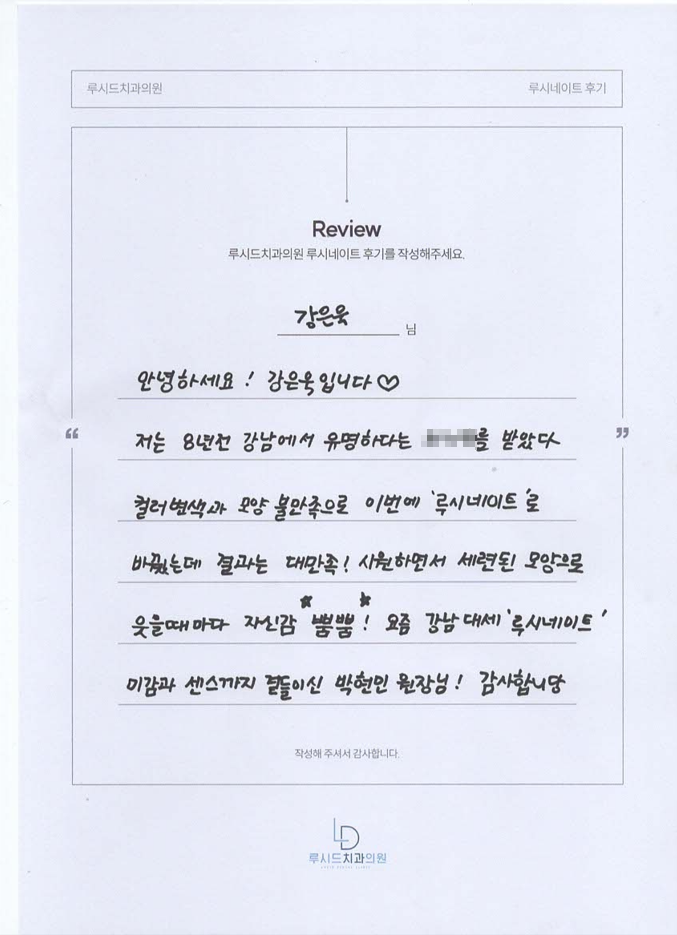 루시드치과의원 루시네이트 후기
Review
루시드치과의원 루시네이트 후기를 작성해주세요.
강은욱 님
안녕하세요! 강은욱입니다♡
“ 저는 8년전 강남에서 유명하다는 를 받았다 ”
컬러변색과 모양 불만족으로 이번에 '루시네이트'로
바꿨는데 결과는 대만족! 시원하면서 세련된 모양으로
웃을때마다 자신감 ★뿜뿜★! 요즘 강남대세 '루시네이트'
미감과 센스까지 이신 박현민 원장님! 감사합니당
작성해 주셔서 감사합니다.
LD
루시드치과의원